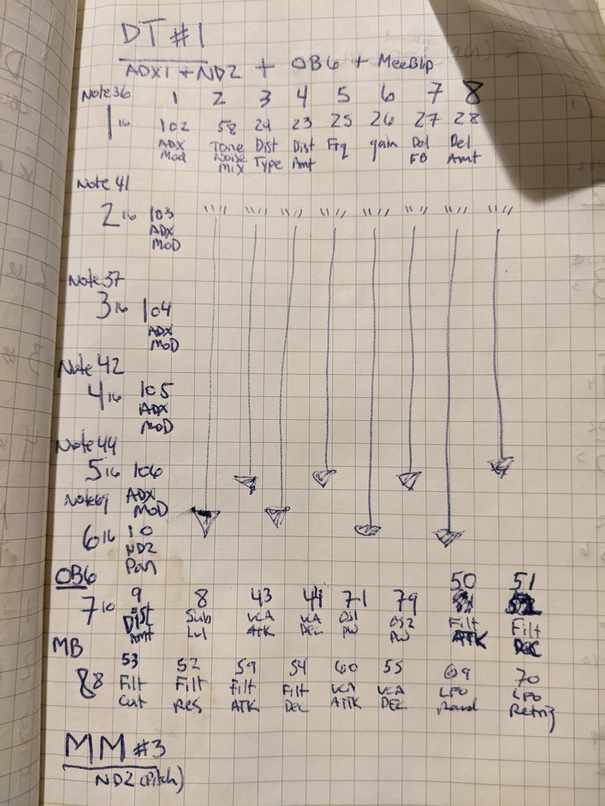 DT #1
ADX1 + ND2 + OB6 + MeeBlip
Note 36 1 2 3 4 5 6 7 8
1 16 102 58 24 23 25 26 27 28
ADX Tone Dist Dist Frq gain Del Del
Mod Noise Type Amt FB Amt
MIX
Note 41
2 16 103 '' // '' // '' // '' // '' // '' // '' //
ADX
MOD
Note 37
3 16 104
ADX
MOD
Note 42
4 16 105
ADX
MOD
Note 44
5 16 106
Note 69 ADX
MOD
6 16 10
ND2
Pan
OB6 50 51
7 10 9 8 43 44 71 79
Dist Sub VCA VCA OS1 OS2 Filt Filt
Amt Lvl ATK DEC PW PW ATK DEC
MB
8 8 53 52 59 54 60 55 69 70
Filt Filt Filt Filt VCA VCA LFO LFO
Cut Res ATK DEC ATTK DEC Rand Retrig
MM #3
ND2 (Pitch)